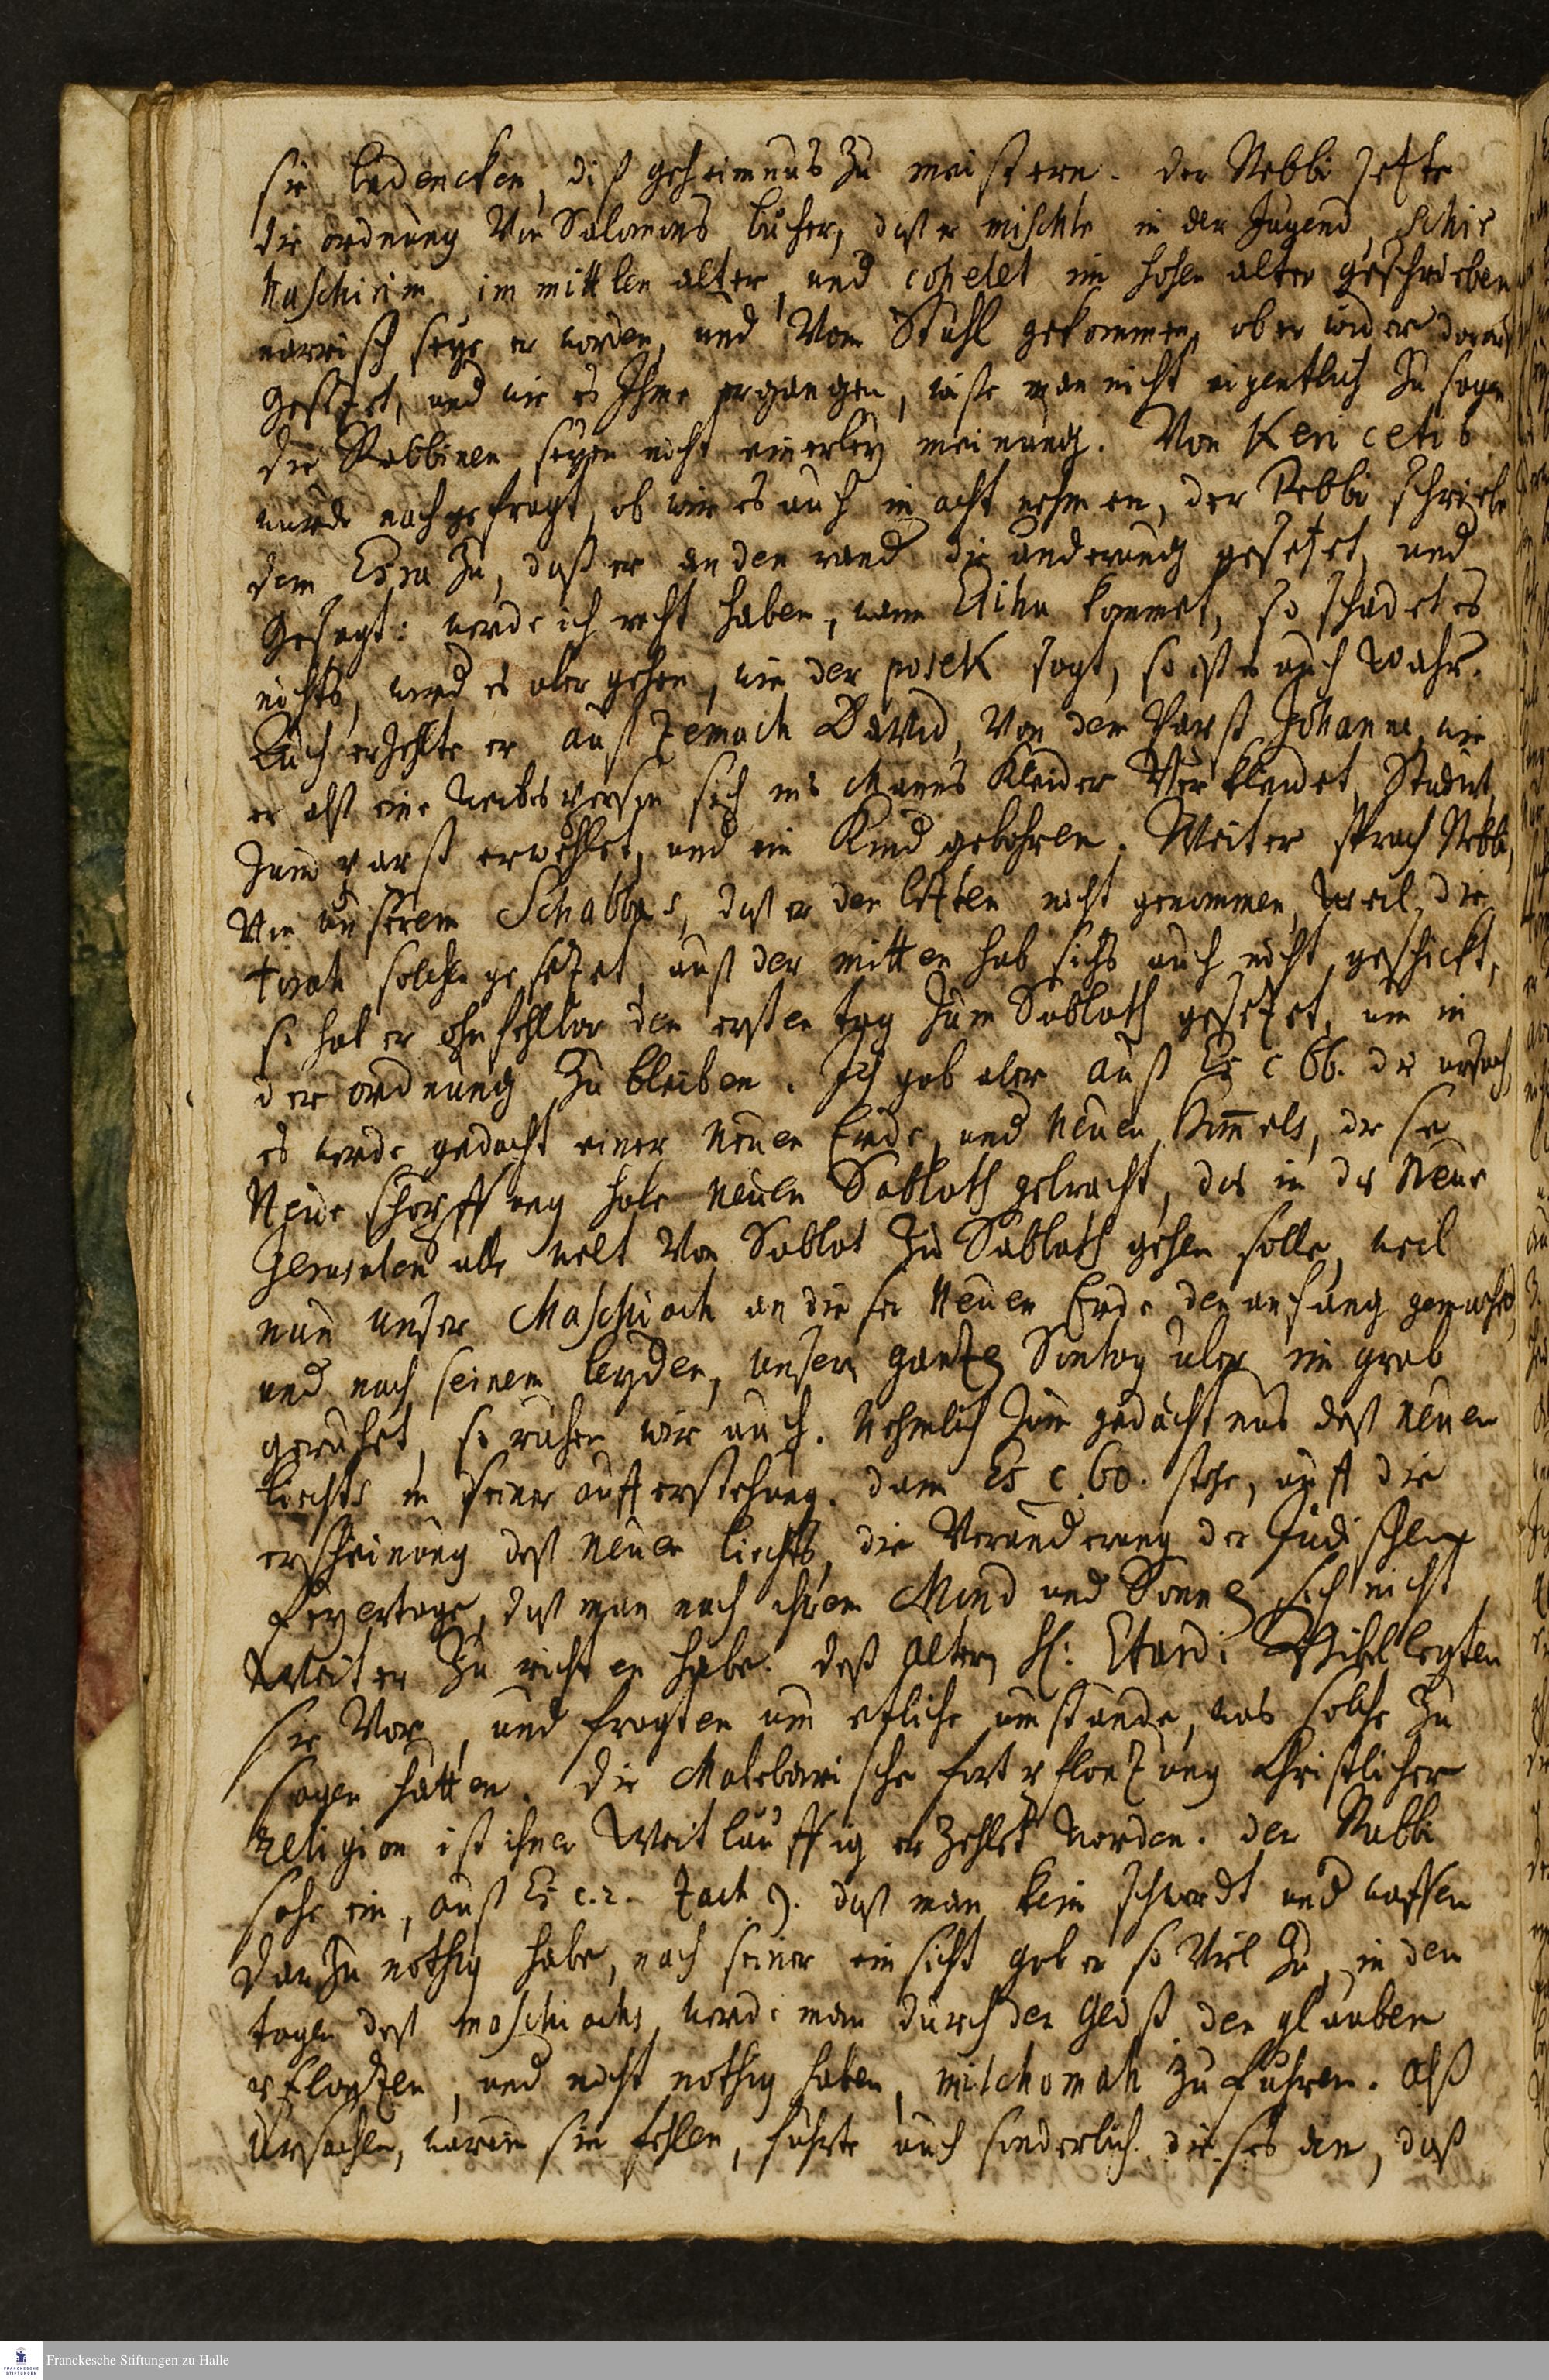 sie bedencken, diß geheimnus zu meistern. der Rebbi setzte
die ordnung von Salomons bücher, daß er mischle in der Jugend, schir
haschirim im mittlen alter, und cohelet im hohen alter geschrieben
narrisch seye er worden, und vom Stuhl gekommen, ob er wider darauf
gesetzet, und wie es Ihme ergangen, wiße man nicht eigentlich zu sagen,
die Rabbinen seyen nicht einerley meinung. Von Keri cetib
wurde nachgefragt, ob wir es auch in acht nehmen, der Rebbi schriebe
dem Esra zu, daß er an den rand die änderung gesetzet, und
gesagt: werde ich recht haben, wann Elihu kommet, so schadet es
nichts, wird es aber gehen, wie der posek sagt, so ist es auch wahr.
Auch erzehlte er auß Zemach David, Von dem Papst Johanne, wie
er alß eine Weibs person sich ins Manns Kleider Verkleidet, Studirt,
zum papst erwehlet, und ein Kind gebohren. Weiter sprach Rebbi,
Von unserem Schabbas, daß er den letzten nicht genommen, weil die
torah solchen gesetzet, auß der mitten hab sichs auch nicht geschickt,
so hab er ohnfehlbar den ersten tag zum Sabbath gesetzet, um in
der ordnung zu bleiben. Ich gab aber auß Es c 66. die ursach,
es werde gedacht einer neuen Erde, und neuen Himmels, diese
Neue schöpffung habe neuen Sabbath gebracht, das in das Neue
Jerusalem alle welt von Sabbat zu Sabbath gehen solle, weil
nun unser Maschiach an dieser Neuen Erde den anfang gemacht,
und nach seinem leyden, unsern gantzen Sontag über im grab
geruhet, so ruhen wir auch. Nehmlich zum gedächtnus deß neuen
liechts in seiner aufferstehung. dann Es c. 60. stehe, auff die
erscheinung deß neuen liechts, die Veränderung der Jüdischen
Feyertage, daß man nach ihrem Mond und Sonnen sich nicht
Weiter zu richten habe. deß Alten H: Etardi Bibel legten
sie Vor, und fragten um etliche umstände, was solche zu
sagen hätten. die Malebarische fortpflantzung Christlicher
religion ist ihnen Weitläuffig erzehlet worden. der Rabbi
sahe ein, auß Es c. 2. Zach 9. daß man kein schwerdt und waffen
darzu nöthig habe, nach seiner einsicht gab er so viel zu, in den
tagen deß maschiachs, werde man durch den Geist den glauben
pflantzen, und nicht nöthig haben, milchomah zu führen. Alß
Ursachen, warum sie fehlen, führte auch sonderlich dieses an, daß
Franckesche Stiftungen zu Halle